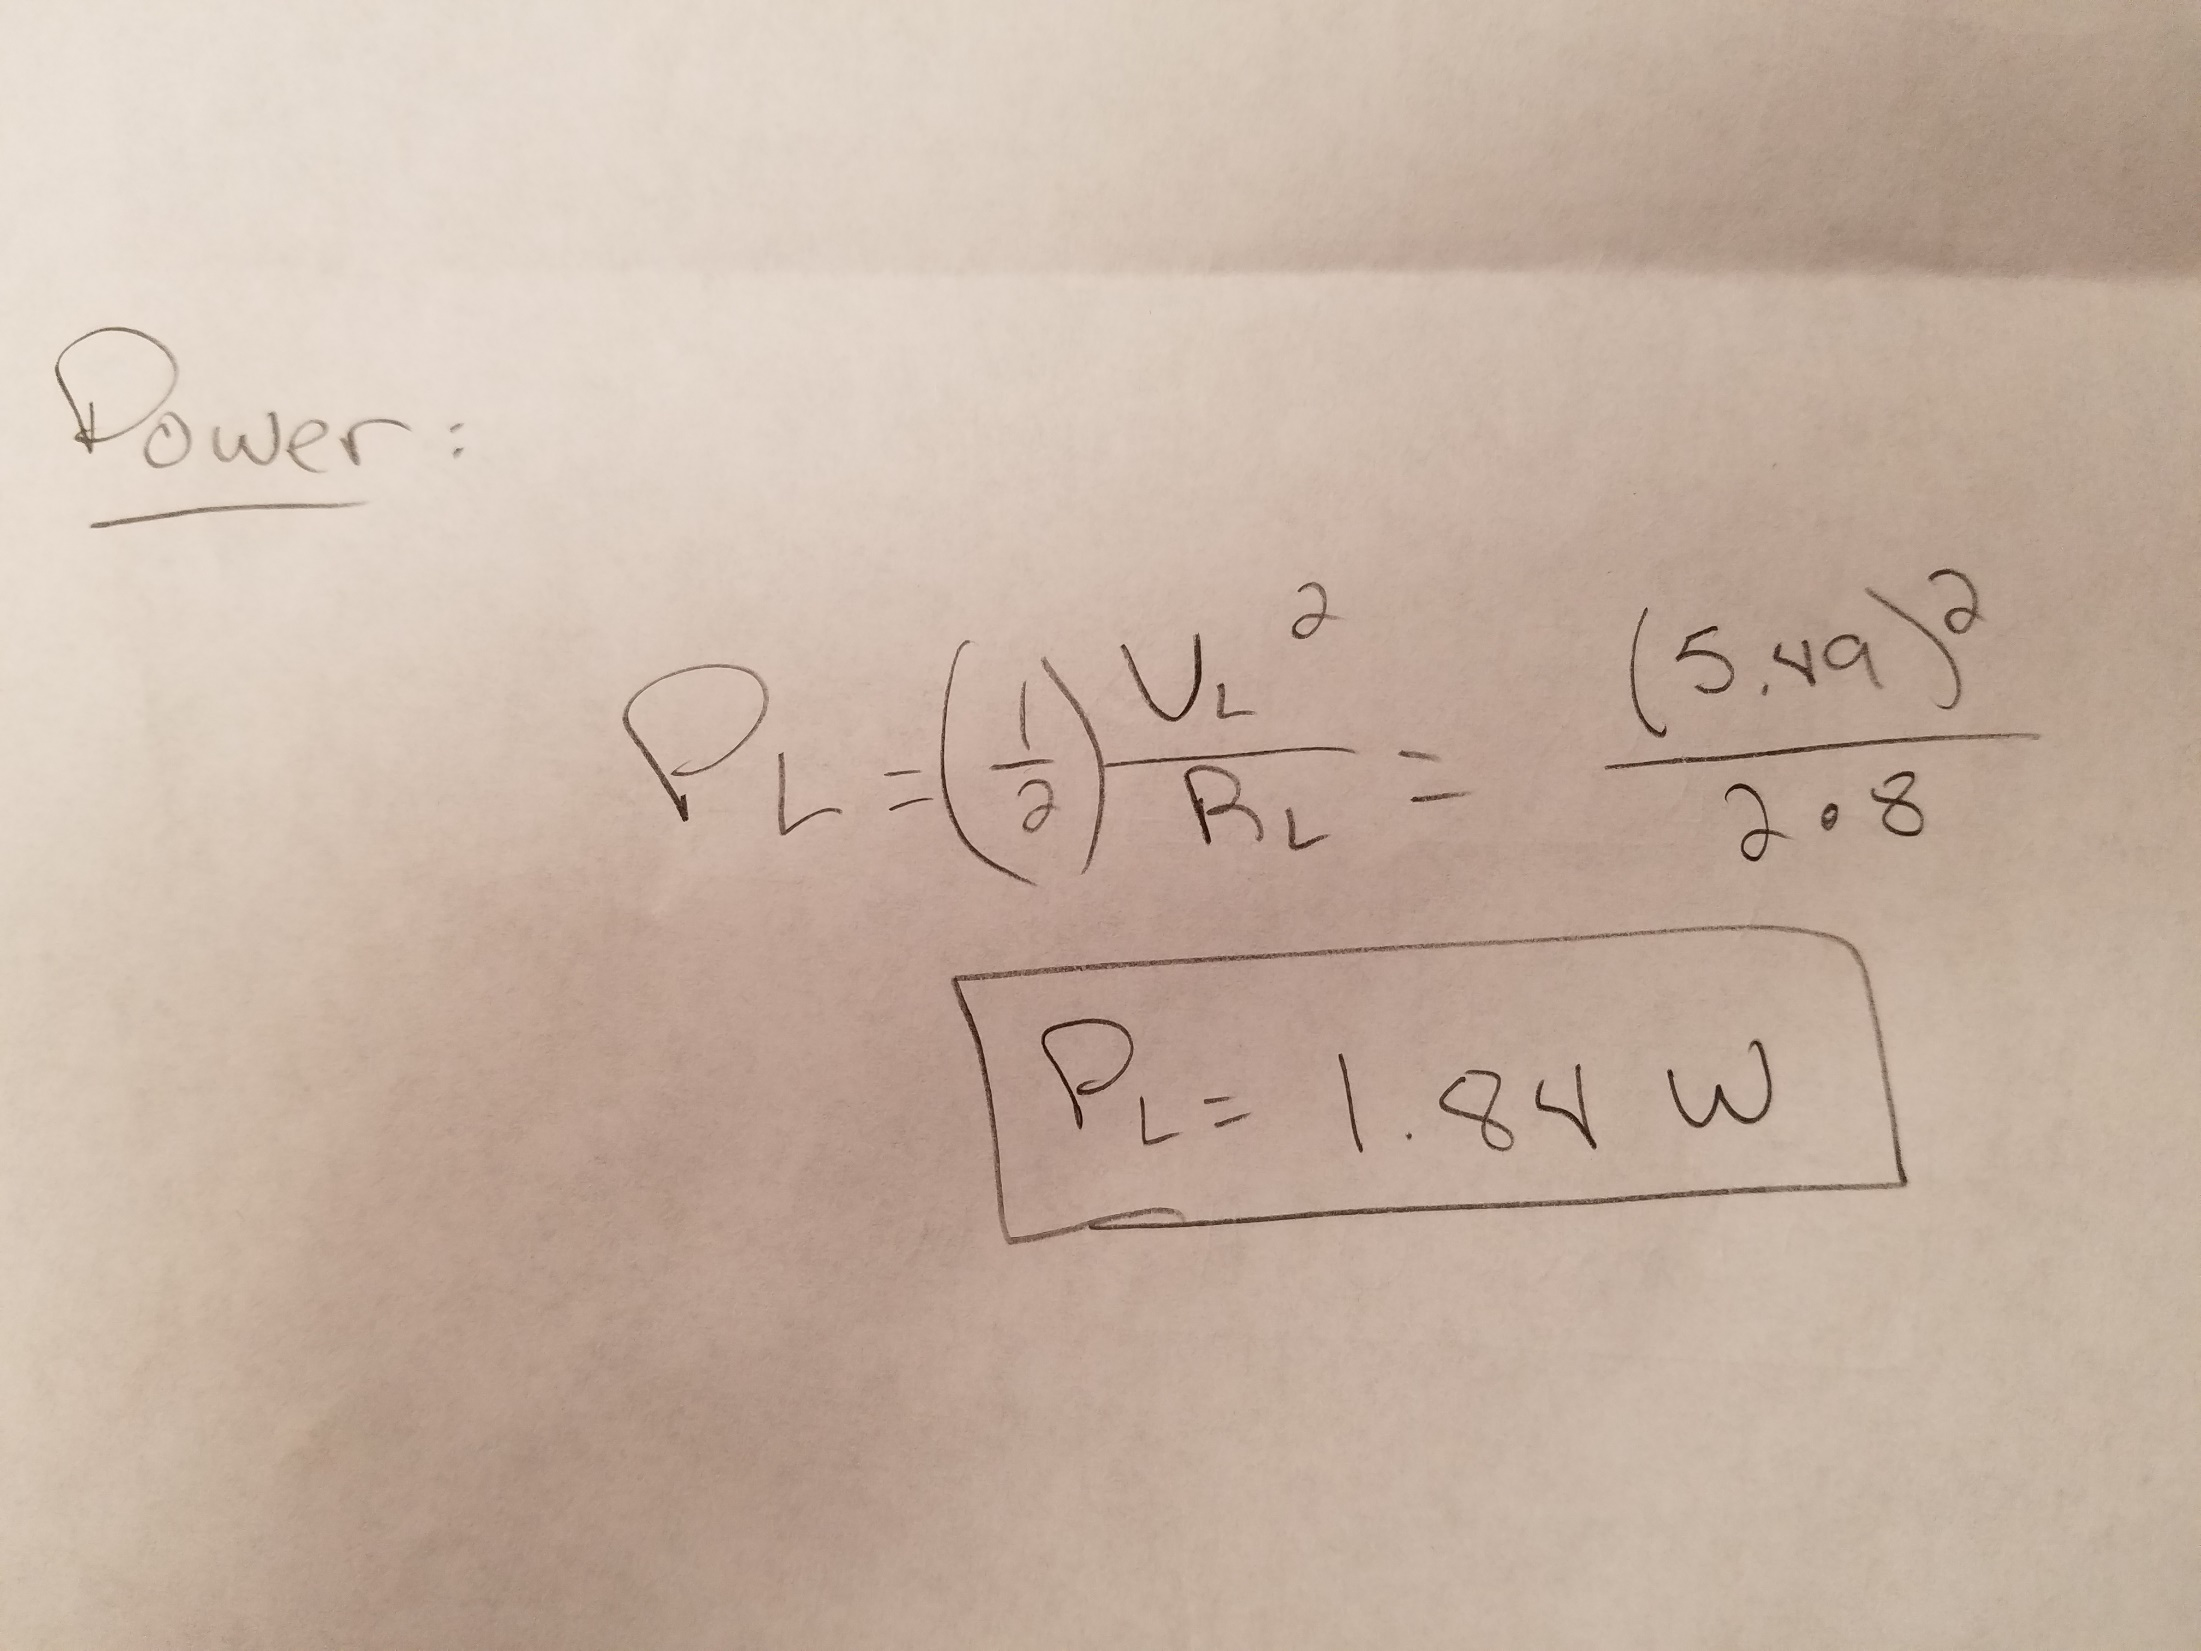 Power:
P_L = (1/2) V_L^2 / R_L = (5.49)^2 / 2•8
P_L = 1.84 W